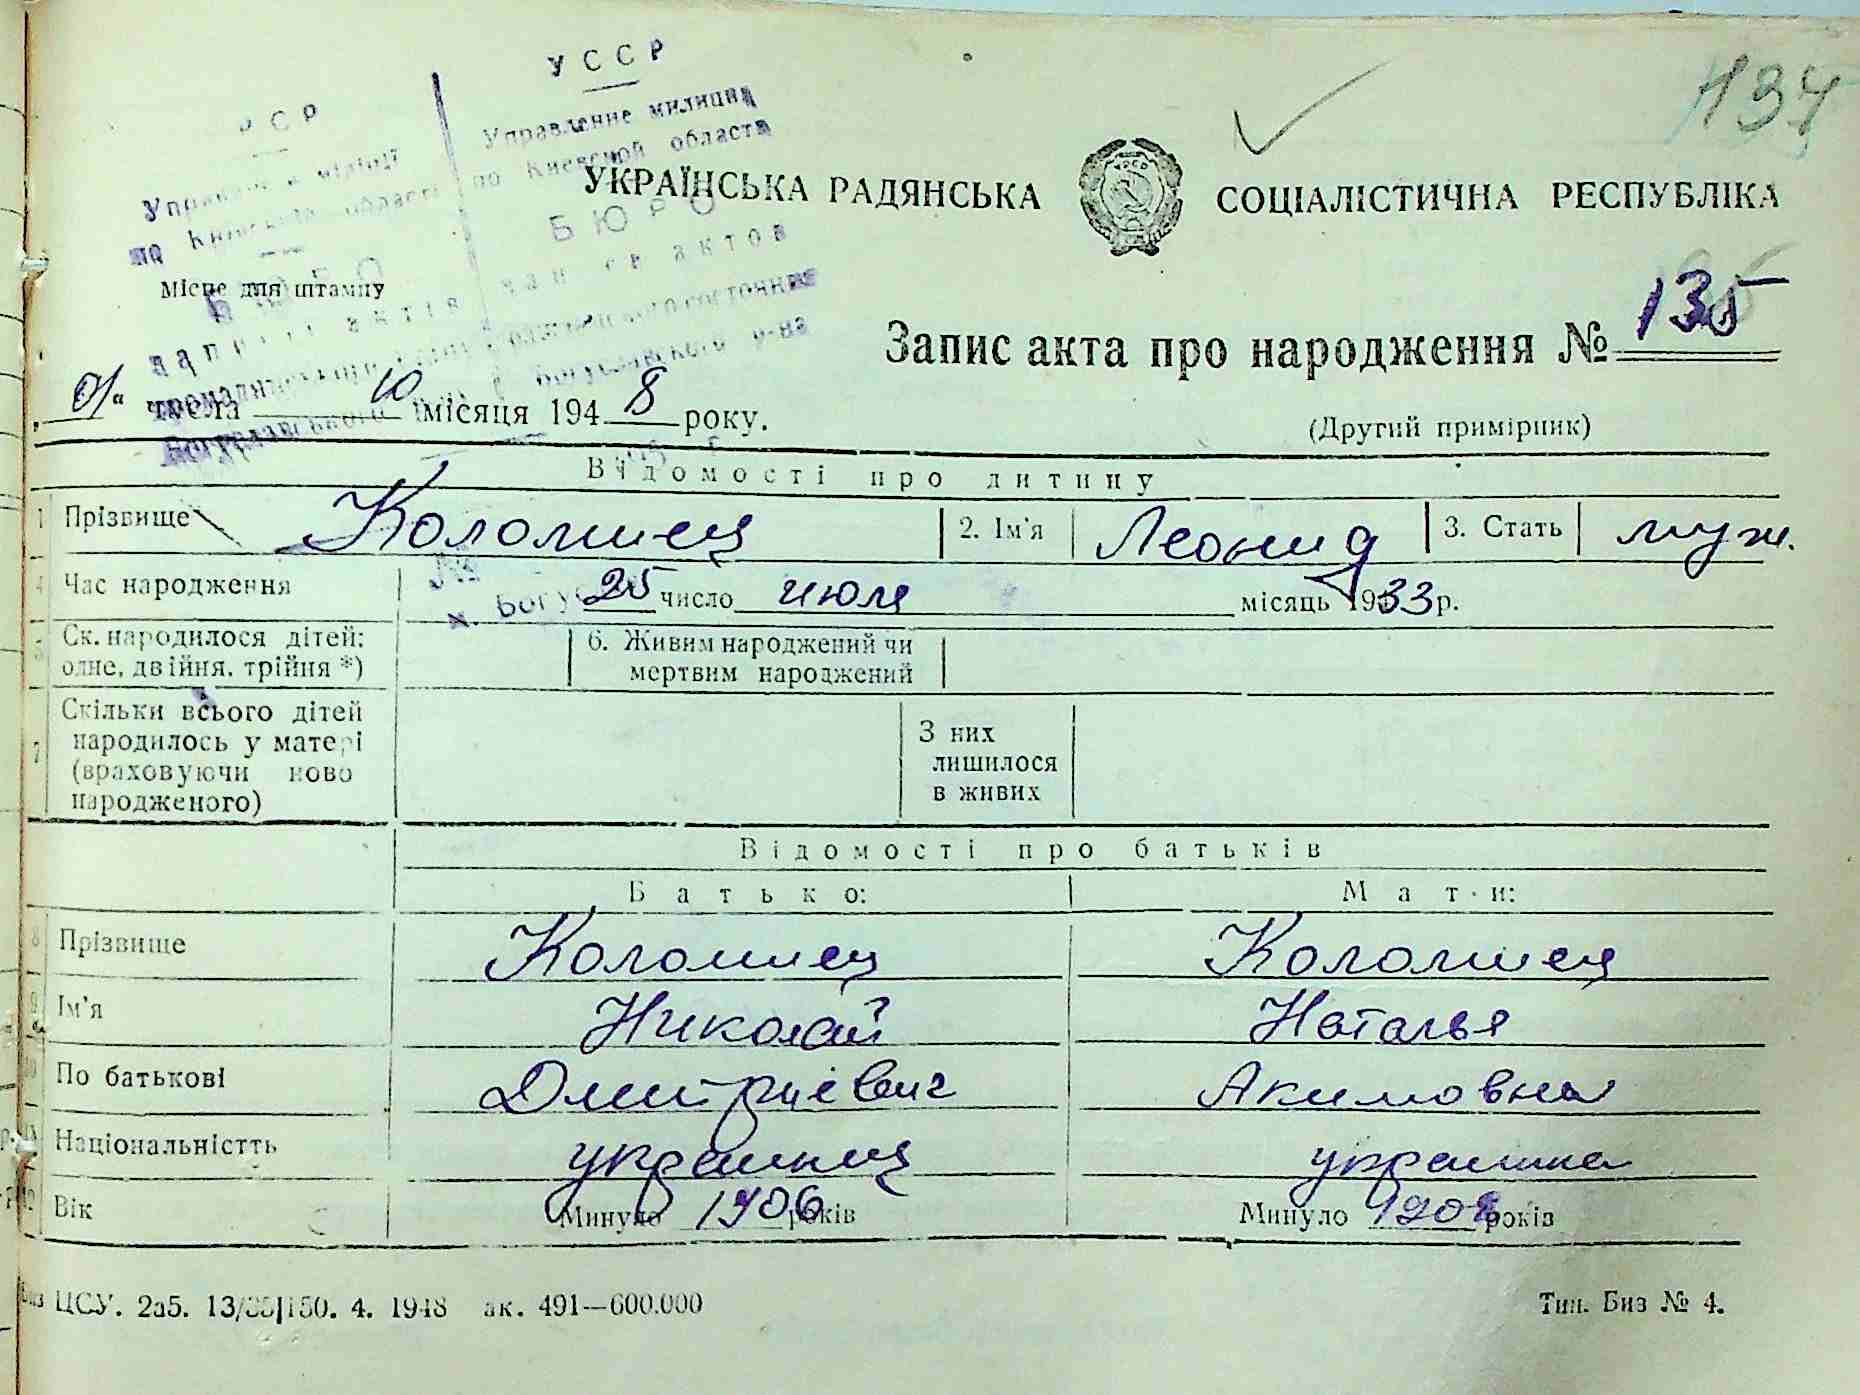 УССР
РСР
Управление милиции
по Киевской области
БЮРО
134
УКРАЇНСЬКА РАДЯНСЬКА СОЦІАЛІСТИЧНА РЕСПУБЛІКА
Місце для штампу
Запис акта про народження № 135
числа 10 місяця 1948 року.
(Другий примірник)
Відомості про дитину
1 Прізвище Коломиец 2. Ім'я Леонид 3. Стать муж.
4 Час народження 25 число июля місяць 1933 р.
5 Ск. народилося дітей: 6. Живим народжений чи
одне, двійня, трійня *) мертвим народжений
7 Скільки всього дітей З них
народилось у матері лишилося
(враховуючи ново в живих
народженого)
Відомості про батьків
Батько: Мати:
8 Прізвище Коломиец Коломиец
9 Ім'я Николай Наталья
По батькові Дмитриевич Акимовна
Національністть украинец украинка
Вік Минуло 1906 років Минуло 1908 років
ЦСУ. 2а5. 13/35|150. 4. 1948 ак. 491—600.000
Тип. Биз № 4.